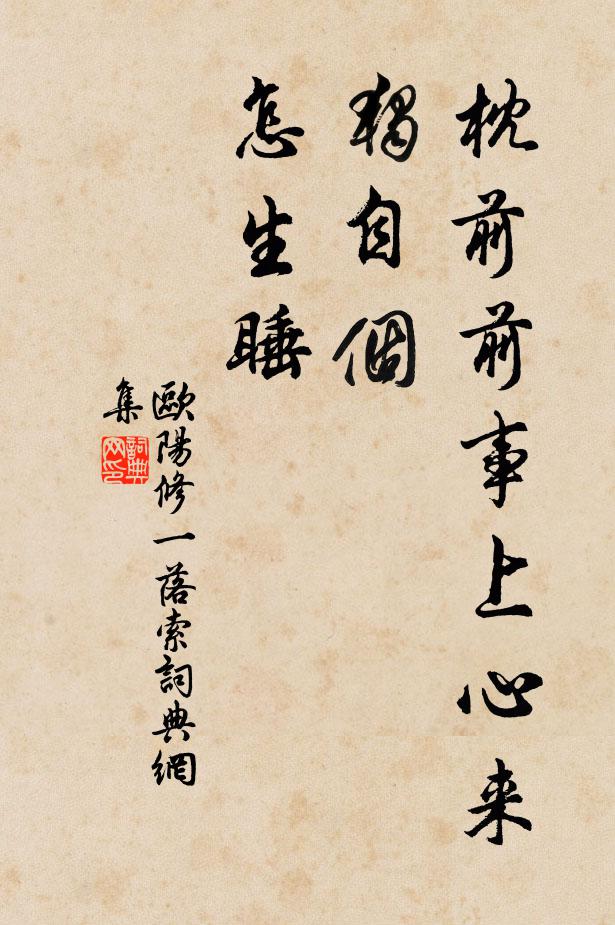 枕前前事上心来
獨自個
怎生睡
歐陽修一落索詞典網
集
詞典
网印